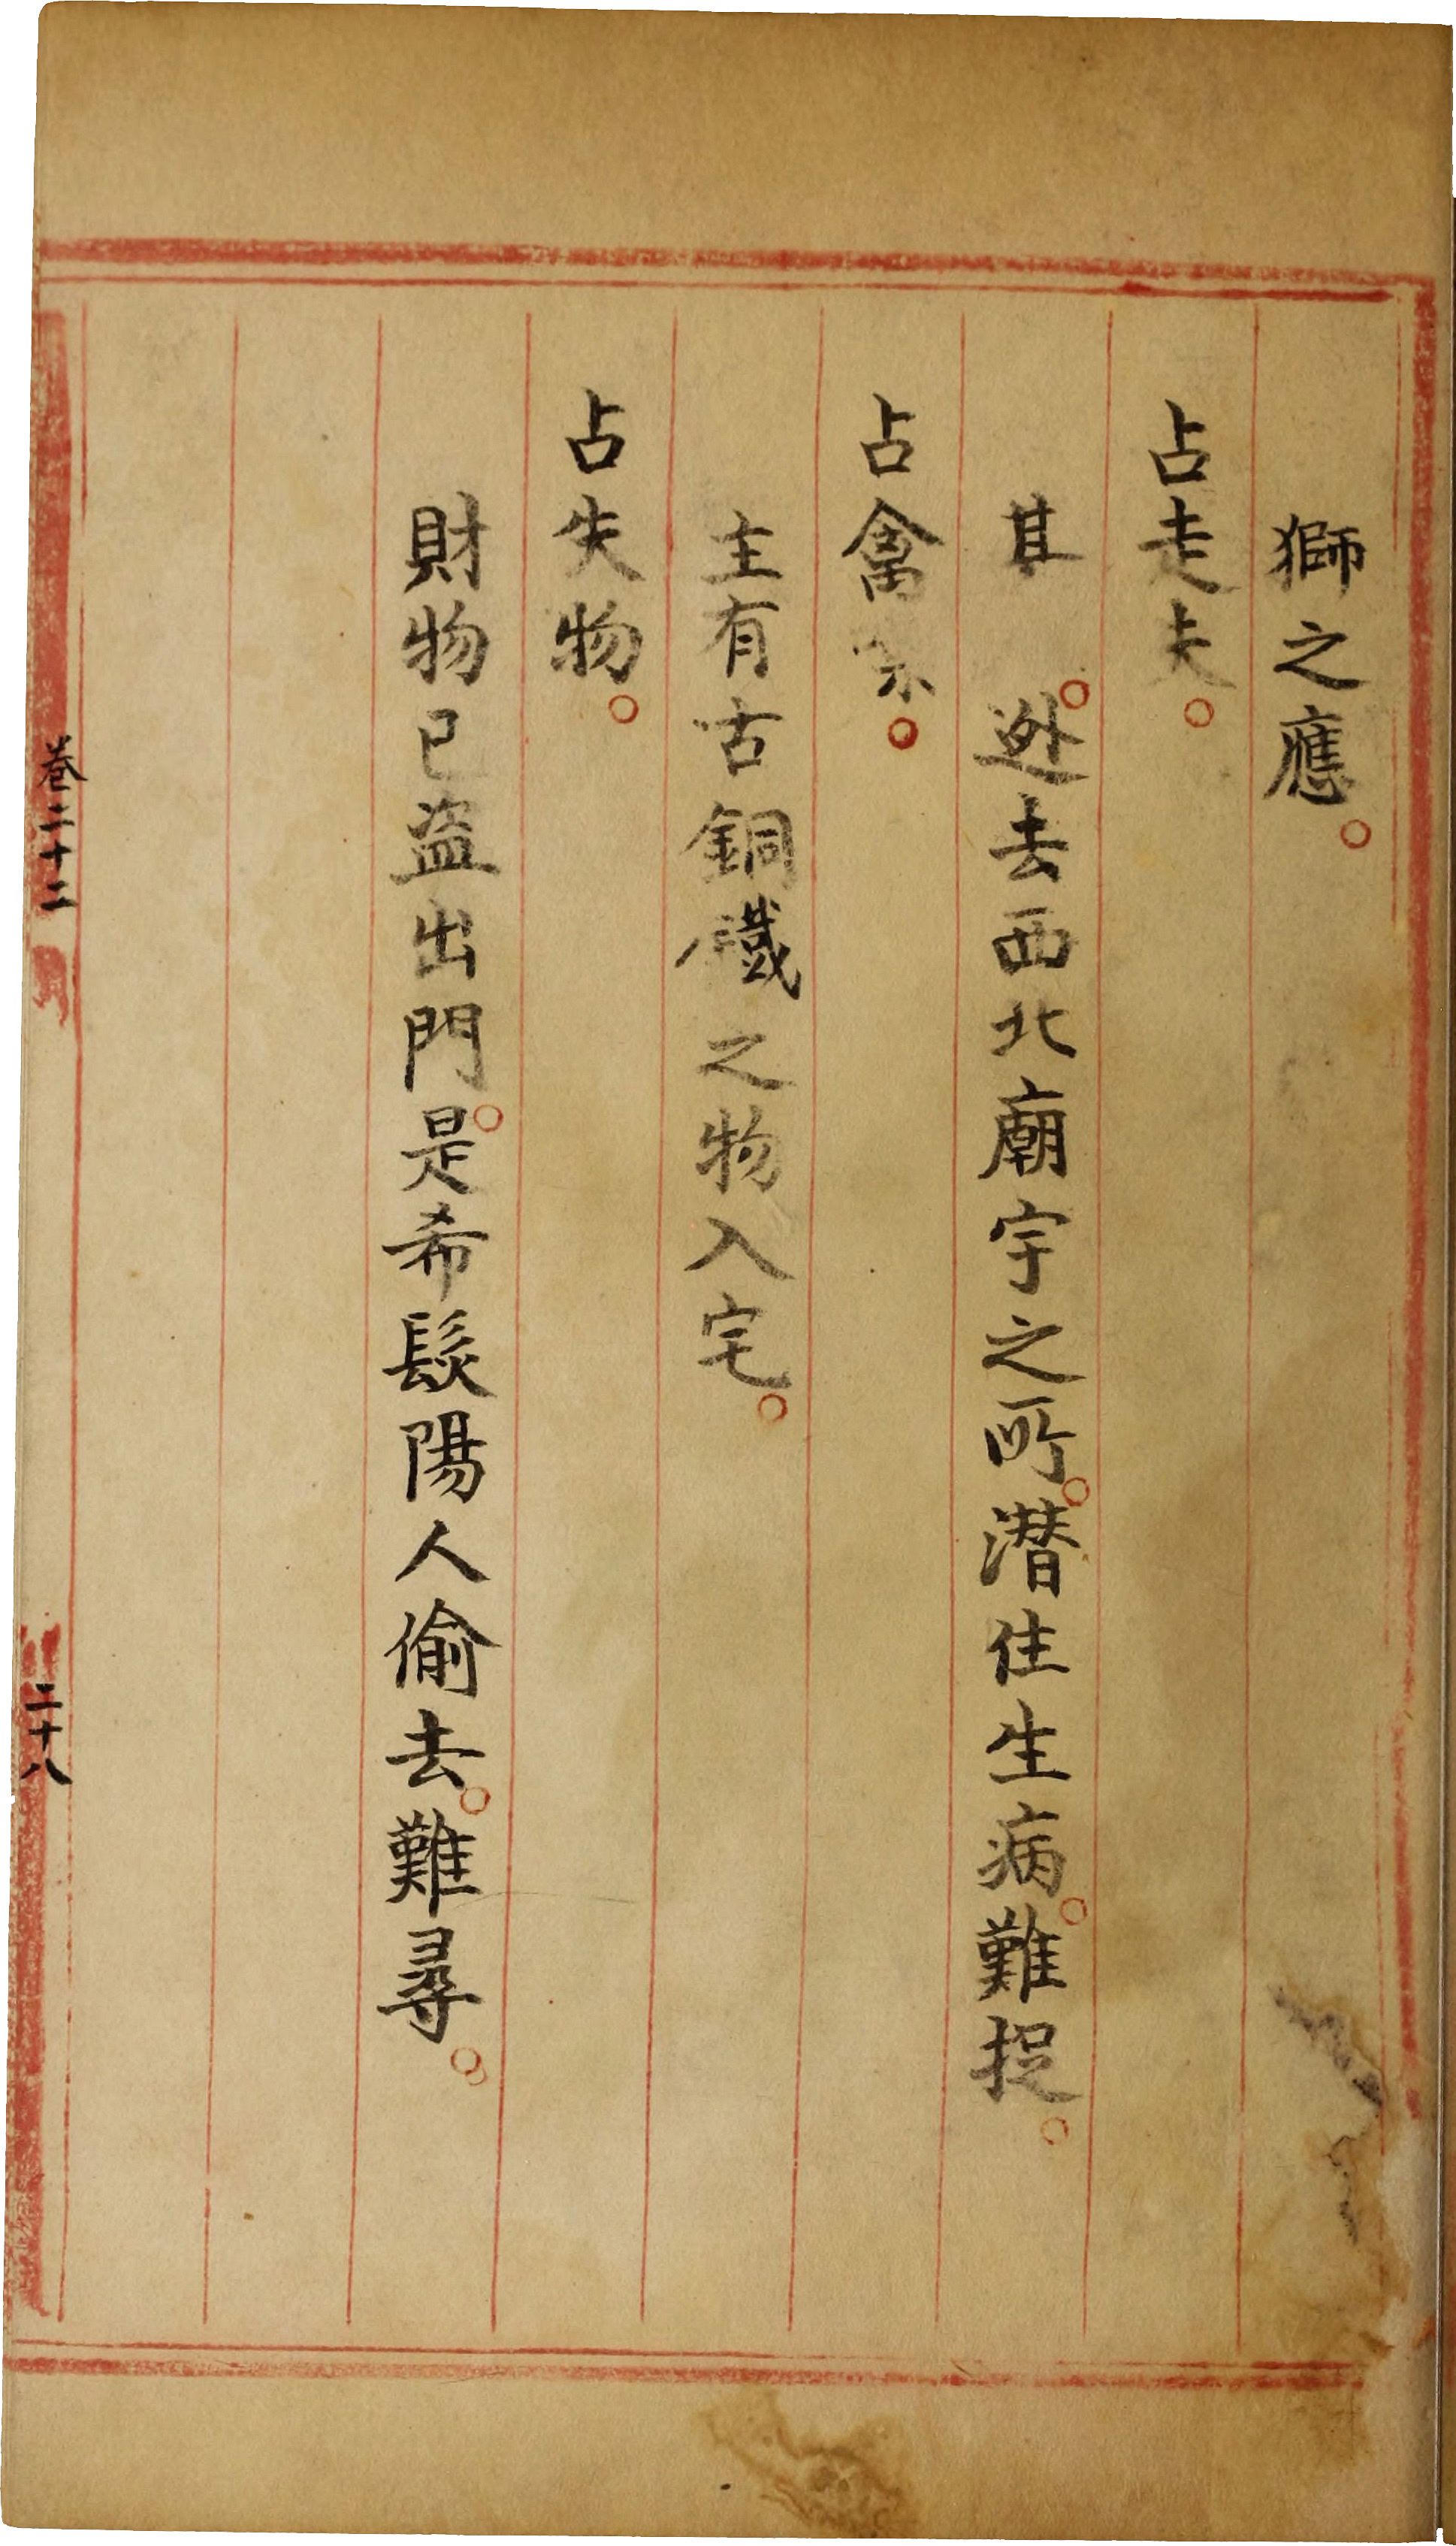 獅之應。
占走失。
其。逃去西北廟宇之所。潜住生病。難捉。
占禽。
主有古銅鐵之物入宅。
占失物。
財物已盜出門。是希髮陽人偷去。難尋。
卷二十二
二十八